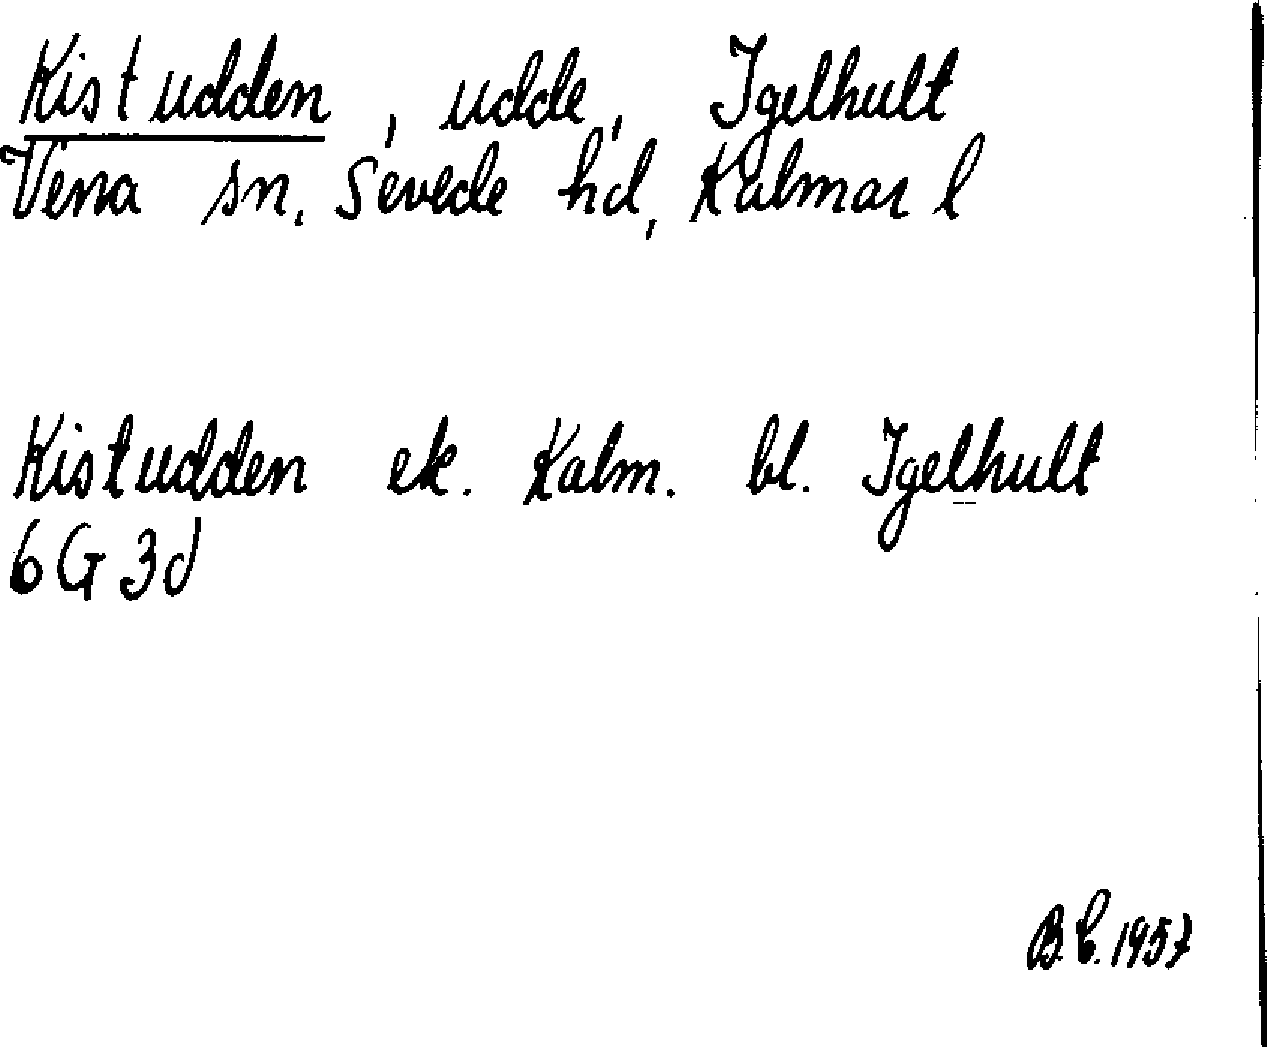 Kistudden, udde, Igelhult
Vena sn, Sevede hd, Kalmar l
Kistudden ek. Kalm. bl. Igelhult
6G3d
B.C. 1957